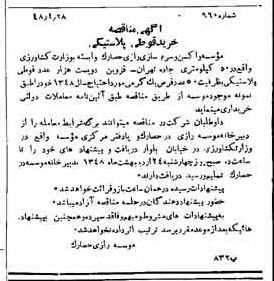 شماره ۹۶۰ ۴۸/۱/۲۸
آگهی مناقصه
خرید قوطی پلاستیکی
مؤسسه واکسن و سرم سازی رازی حصارک وابسته بوزارت کشاورزی
واقع در ۵۰ کیلومتری جاده تهران - قزوین دویست هزار عدد قوطی
پلاستیکی بظرفیت ۵۰ عدد قرص یک گرمی مورد احتیاج سال ۱۳۴۸ خود را طبق
نمونه موجود مؤسسه از طریق مناقصه طبق آئین نامه معاملات دولتی
خریداری مینماید
داوطلبان شرکت در مناقصه میتوانند برگ شرایط معامله را از
دبیرخانه موسسه رازی در حصارک و یا دفتر مرکزی مؤسسه واقع در
وزارت کشاورزی در خیابان بلوار دریافت و پیشنهاد های خود را تا
ساعت ۱۰ صبح روز چهارشنبه ۲۴ اردیبهشت ماه ۱۳۴۸ بدبیرخانه موسسه در
حصارک تسلیم و رسید دریافت دارند
پیشنهادات رسیده در همان ساعت باز و قرائت خواهد شد
حضور پیشنهاد دهندگان در جلسه مناقصه آزاد میباشد
به پیشنهادات های مشروط و مبهم و فاقد سپرده و همچنین پیشنهاد
هائیکه بعد از موعد مقرر برسد ترتیب اثر داده نخواهد شد
موسسه رازی حصارک
ب ۸۳۲